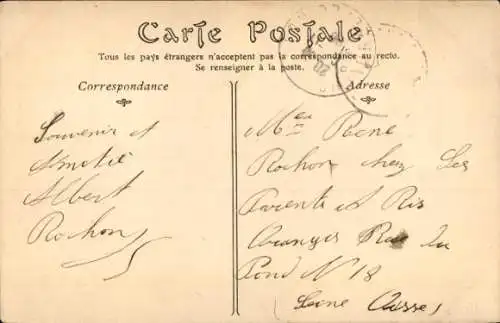 Carte Postale
Tous les pays étrangers n'acceptent pas la correspondance au recto.
Se renseigner à la poste.
Correspondance
Adresse
Souvenir et
Amitié
Albert
Rochon
Rochon chez Ses
Parents et Ris
Orangis Rue du
Pond N° 18